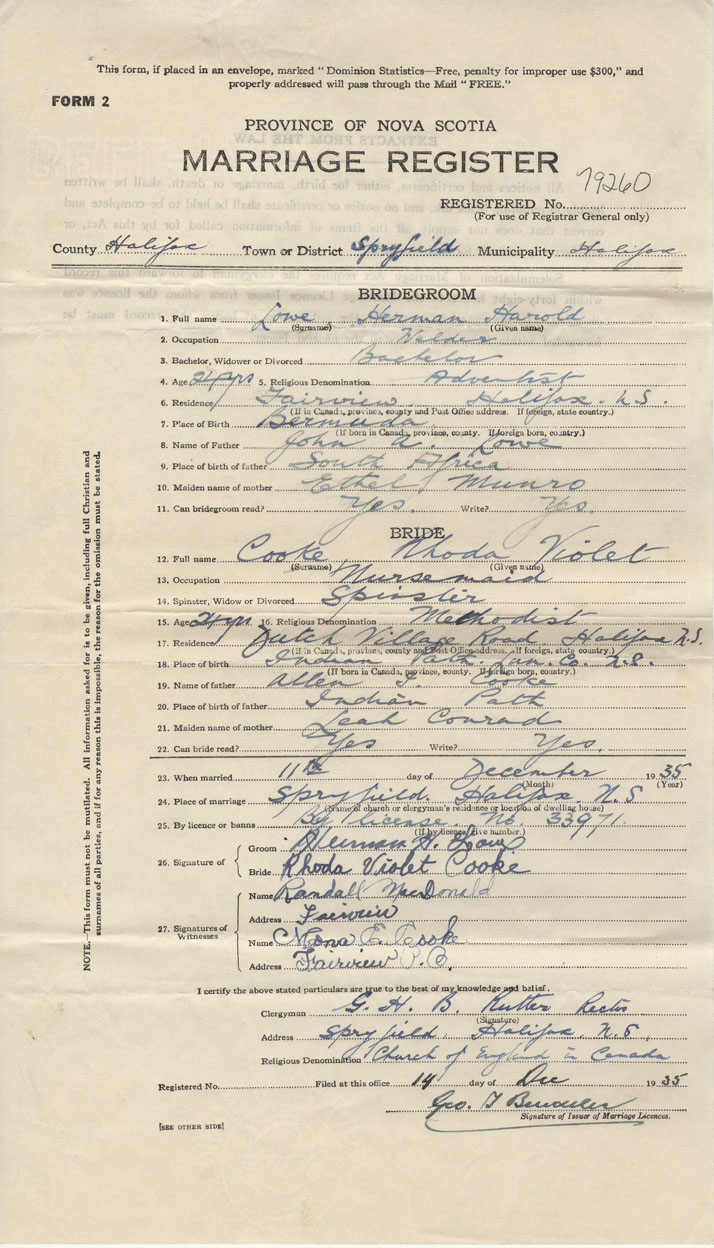 This form, if placed in an envelope, marked "Dominion Statistics—Free, penalty for improper use $300," and
properly addressed will pass through the Mail "FREE."
FORM 2
PROVINCE OF NOVA SCOTIA
MARRIAGE REGISTER
79260
REGISTERED No.
(For use of Registrar General only)
County Halifax Town or District Spryfield Municipality Halifax
BRIDEGROOM
1. Full name Lowe Herman Harold
(Surname) (Given name)
2. Occupation Welder
3. Bachelor, Widower or Divorced Bachelor
4. Age 24 yrs 5. Religious Denomination Adventist
6. Residence Fairview Halifax. N.S.
(If in Canada, province, county and Post Office address. If foreign, state country.)
7. Place of Birth Bermuda
(If born in Canada, province, county. If foreign born, country.)
8. Name of Father John A. Lowe
9. Place of birth of father South Africa
10. Maiden name of mother Ethel Munro
11. Can bridegroom read? Yes. Write? Yes.
BRIDE
12. Full name Cooke Rhoda Violet
(Surname) (Given name)
13. Occupation Nursemaid
14. Spinster, Widow or Divorced Spinster
15. Age 24 yrs 16. Religious Denomination Methodist
17. Residence Dutch Village Road Halifax N.S.
(If in Canada, province, county and Post Office address. If foreign, state country.)
18. Place of birth Indian Path. Lun. Co. N.S.
(If born in Canada, province, county. If foreign born, country.)
19. Name of father Allen J. Cooke
20. Place of birth of father Indian Path
21. Maiden name of mother Leah Conrad
22. Can bride read? Yes Write? Yes.
23. When married 11th day of December 1935
(Month) (Year)
24. Place of marriage Spryfield. Halifax. N.S
(Name of church or clergyman's residence or location of dwelling house)
25. By licence or banns By license. No. 33971
(If by licence, give number.)
26. Signature of
Groom Herman H. Lowe
Bride Rhoda Violet Cooke
27. Signatures of Witnesses
Name Randall MacDonald
Address Fairview
Name Mona E. Cooke
Address Fairview P.O.
I certify the above stated particulars are true to the best of my knowledge and belief.
Clergyman G. H. B. Rutter Rector
(Signature)
Address Spryfield, Halifax, N.S,
Religious Denomination Church of England in Canada
Registered No. Filed at this office 14 day of Dec 1935
Geo. T
Signature of Issuer of Marriage Licences.
[SEE OTHER SIDE]
NOTE.—This form must not be mutilated. All information asked for is to be given, including full Christian and
surnames of all parties, and if for any reason this is impossible, the reason for the omission must be stated.